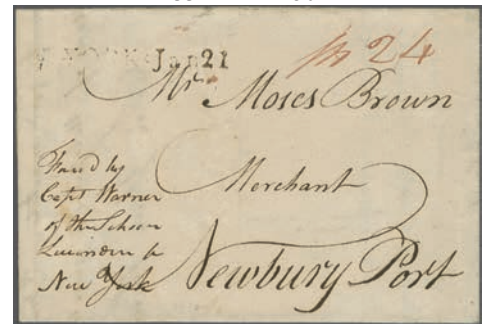 YORK Jan 21
24
Mr. Moses Brown
Merchant
Newbury Port
Capt Warner
of the Schoor
New York